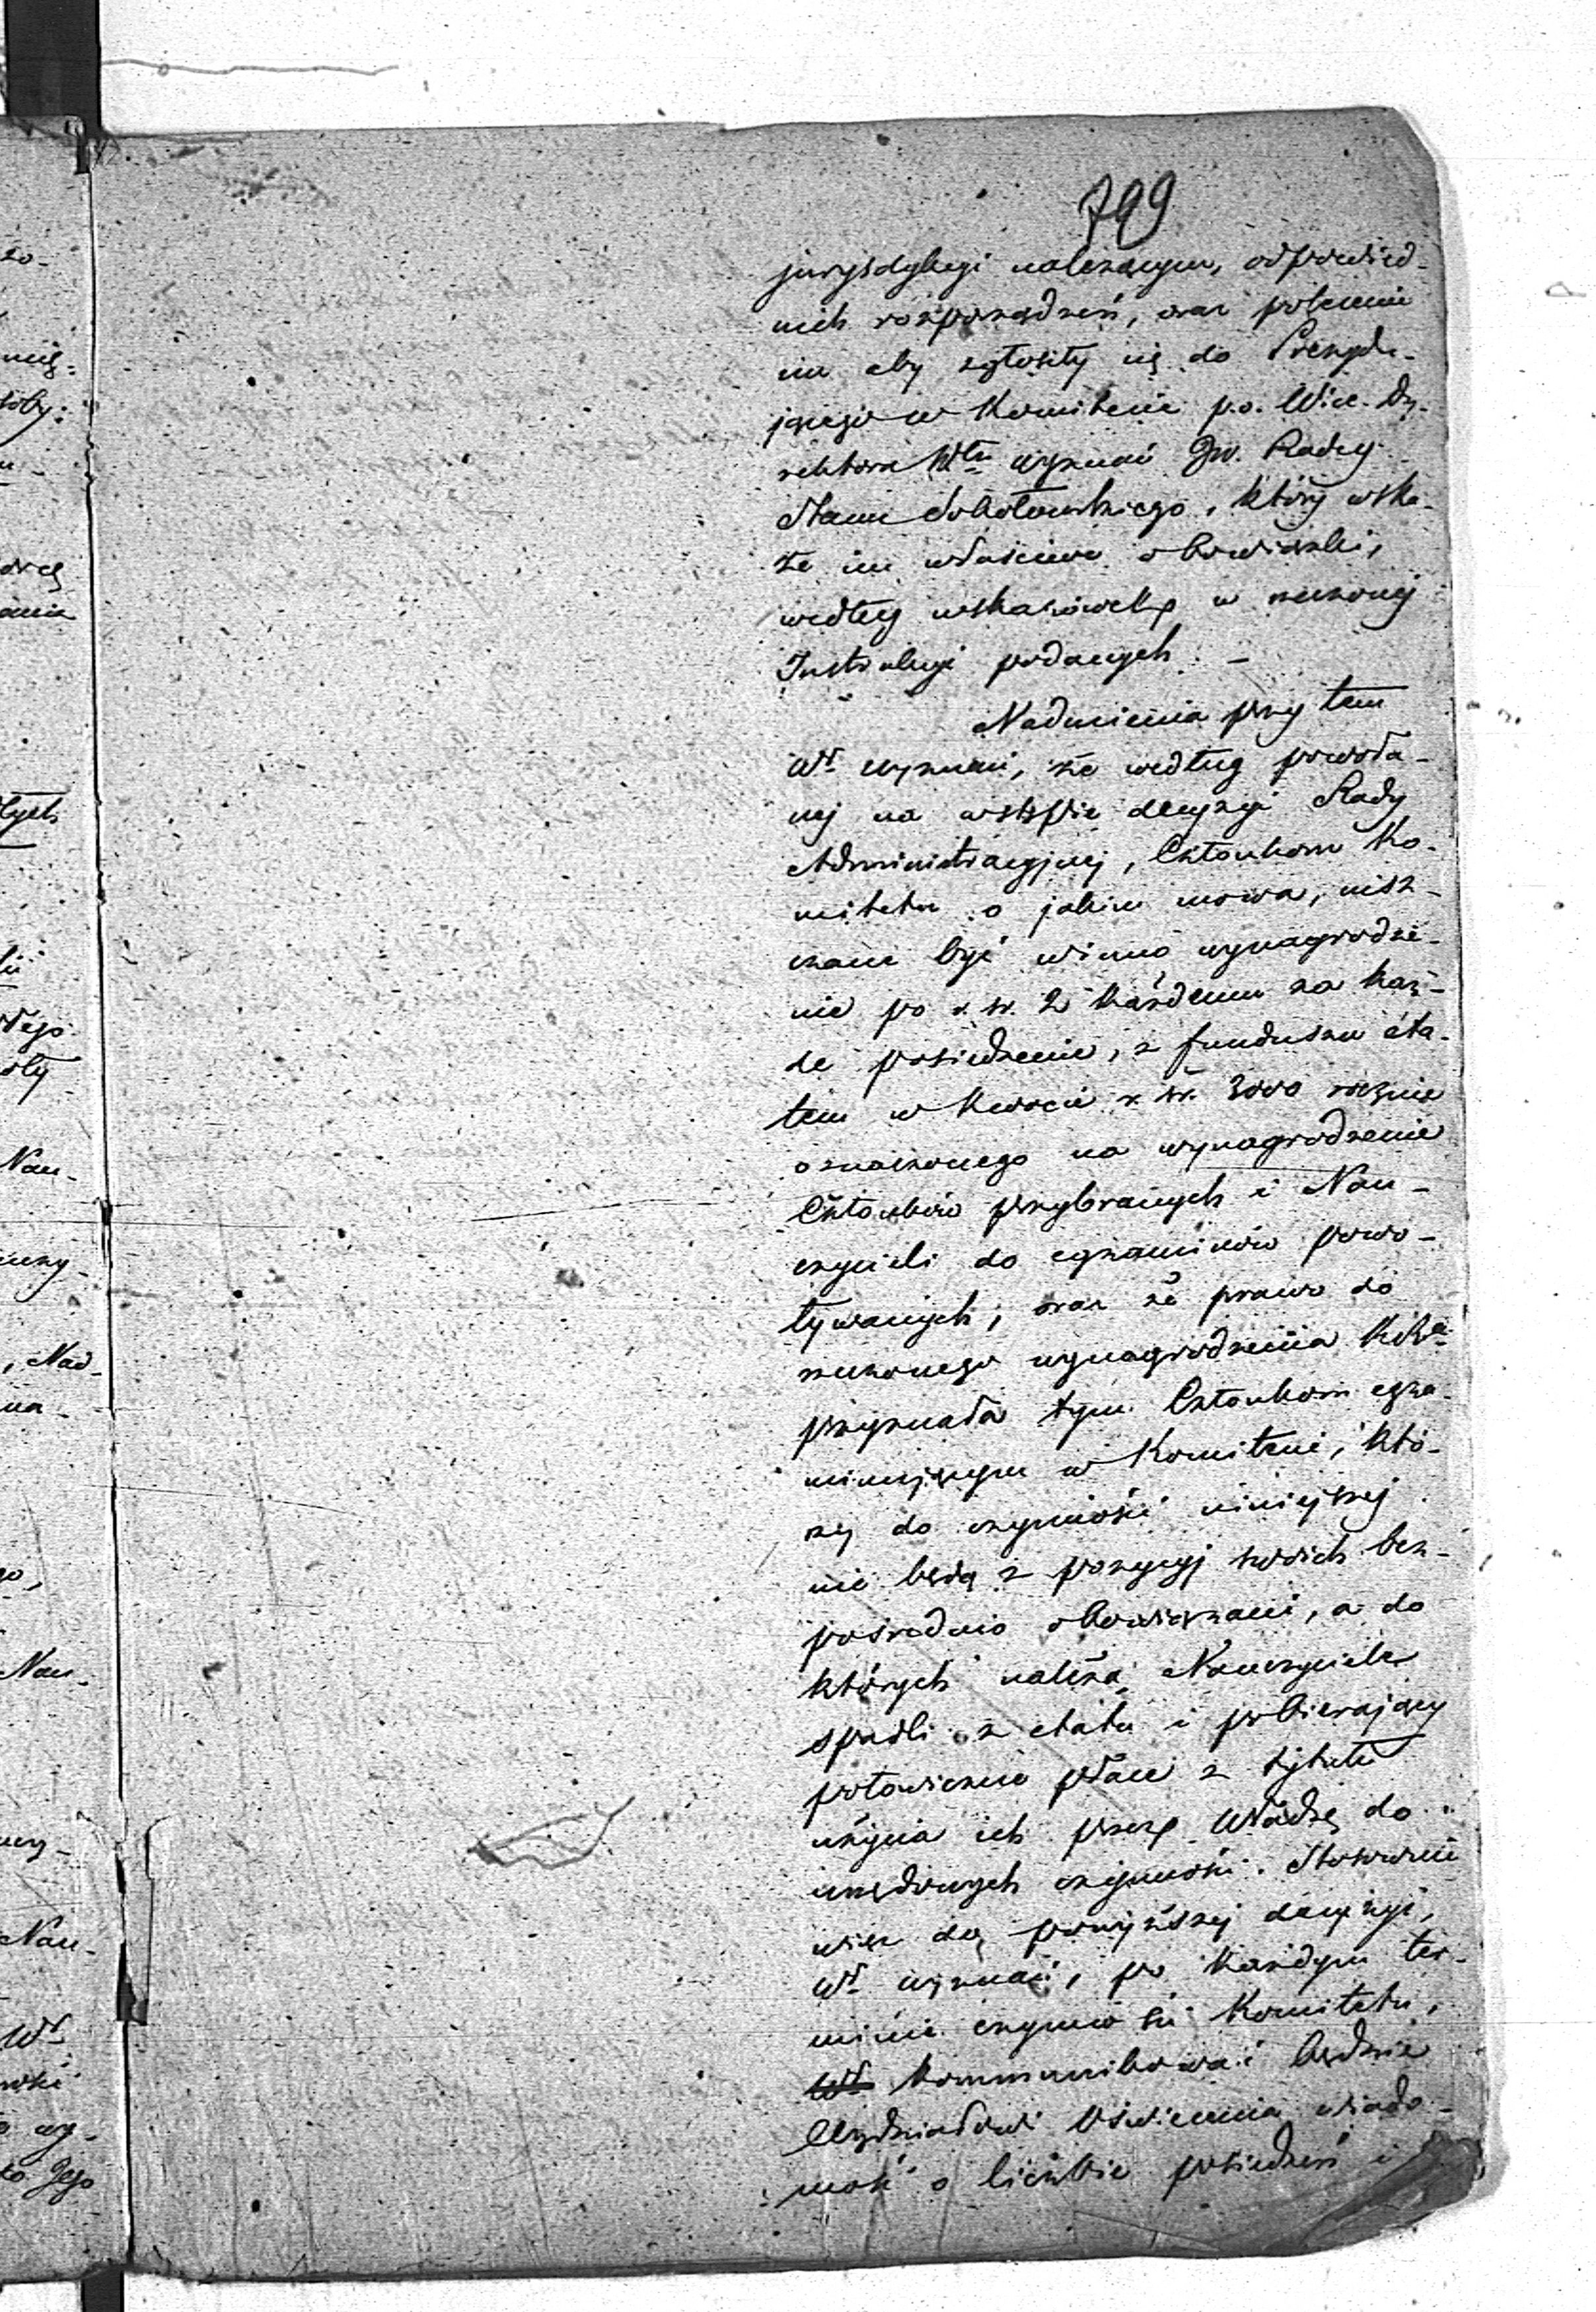 799
jurysdykcyi należącym, odpowied-
nich rozporządzeń, oraz polecenie
im aby zgłosiły się do Prezydu-
jącego w Komitecie p.o. Wice-Dy-
rektora Włu wyznań Rz. Rady
Stanu Sobolewskiego, który wska-
że im właściwe obowiązki,
według wskazówek w rzeczonej
Instrukcyi podanych. –
Nadmienia przy tem
Wł wyznań, że według powoła-
nej na wstępie decyzyi Rady
Administracyjnej, Członkom Ko-
mitetu o jakim mowa, uisz-
czane być winno wynagrodze-
nie po r. sr. 2 każdemu za każ-
de posiedzenie, z funduszu eta-
tem w kwocie r. sr. 3000 rocznie
oznaczonego na wynagrodzenie
Członków przybranych i Nau-
czycieli do egzaminów powo-
ływanych; oraz że prawo do
rzeczonego wynagrodzenia
przyznała tym Członkom egza-
minującym w Komitecie, któ-
rzy do czynności niniejszej
nie będą z pozycyj swoich bez-
pośrednio obowiązani, a do
których należą Nauczyciele
spadli z etatu i pobierający
połowiczne płace z tytułu
użycia ich przez Władzę do
urzędowych czynności. Stosownie
więc do powyższej decyzyi,
Wł wyznań, po każdym ter-
minie czynności Komitetu,
Wł kommunikować będzie
Wydziałowi Oświecenia wiado-
mość o liczbie posiedzeń i
zo-
Nau-
Nad-
na-
Nau-
Nau-
Wł
wy-
Jego